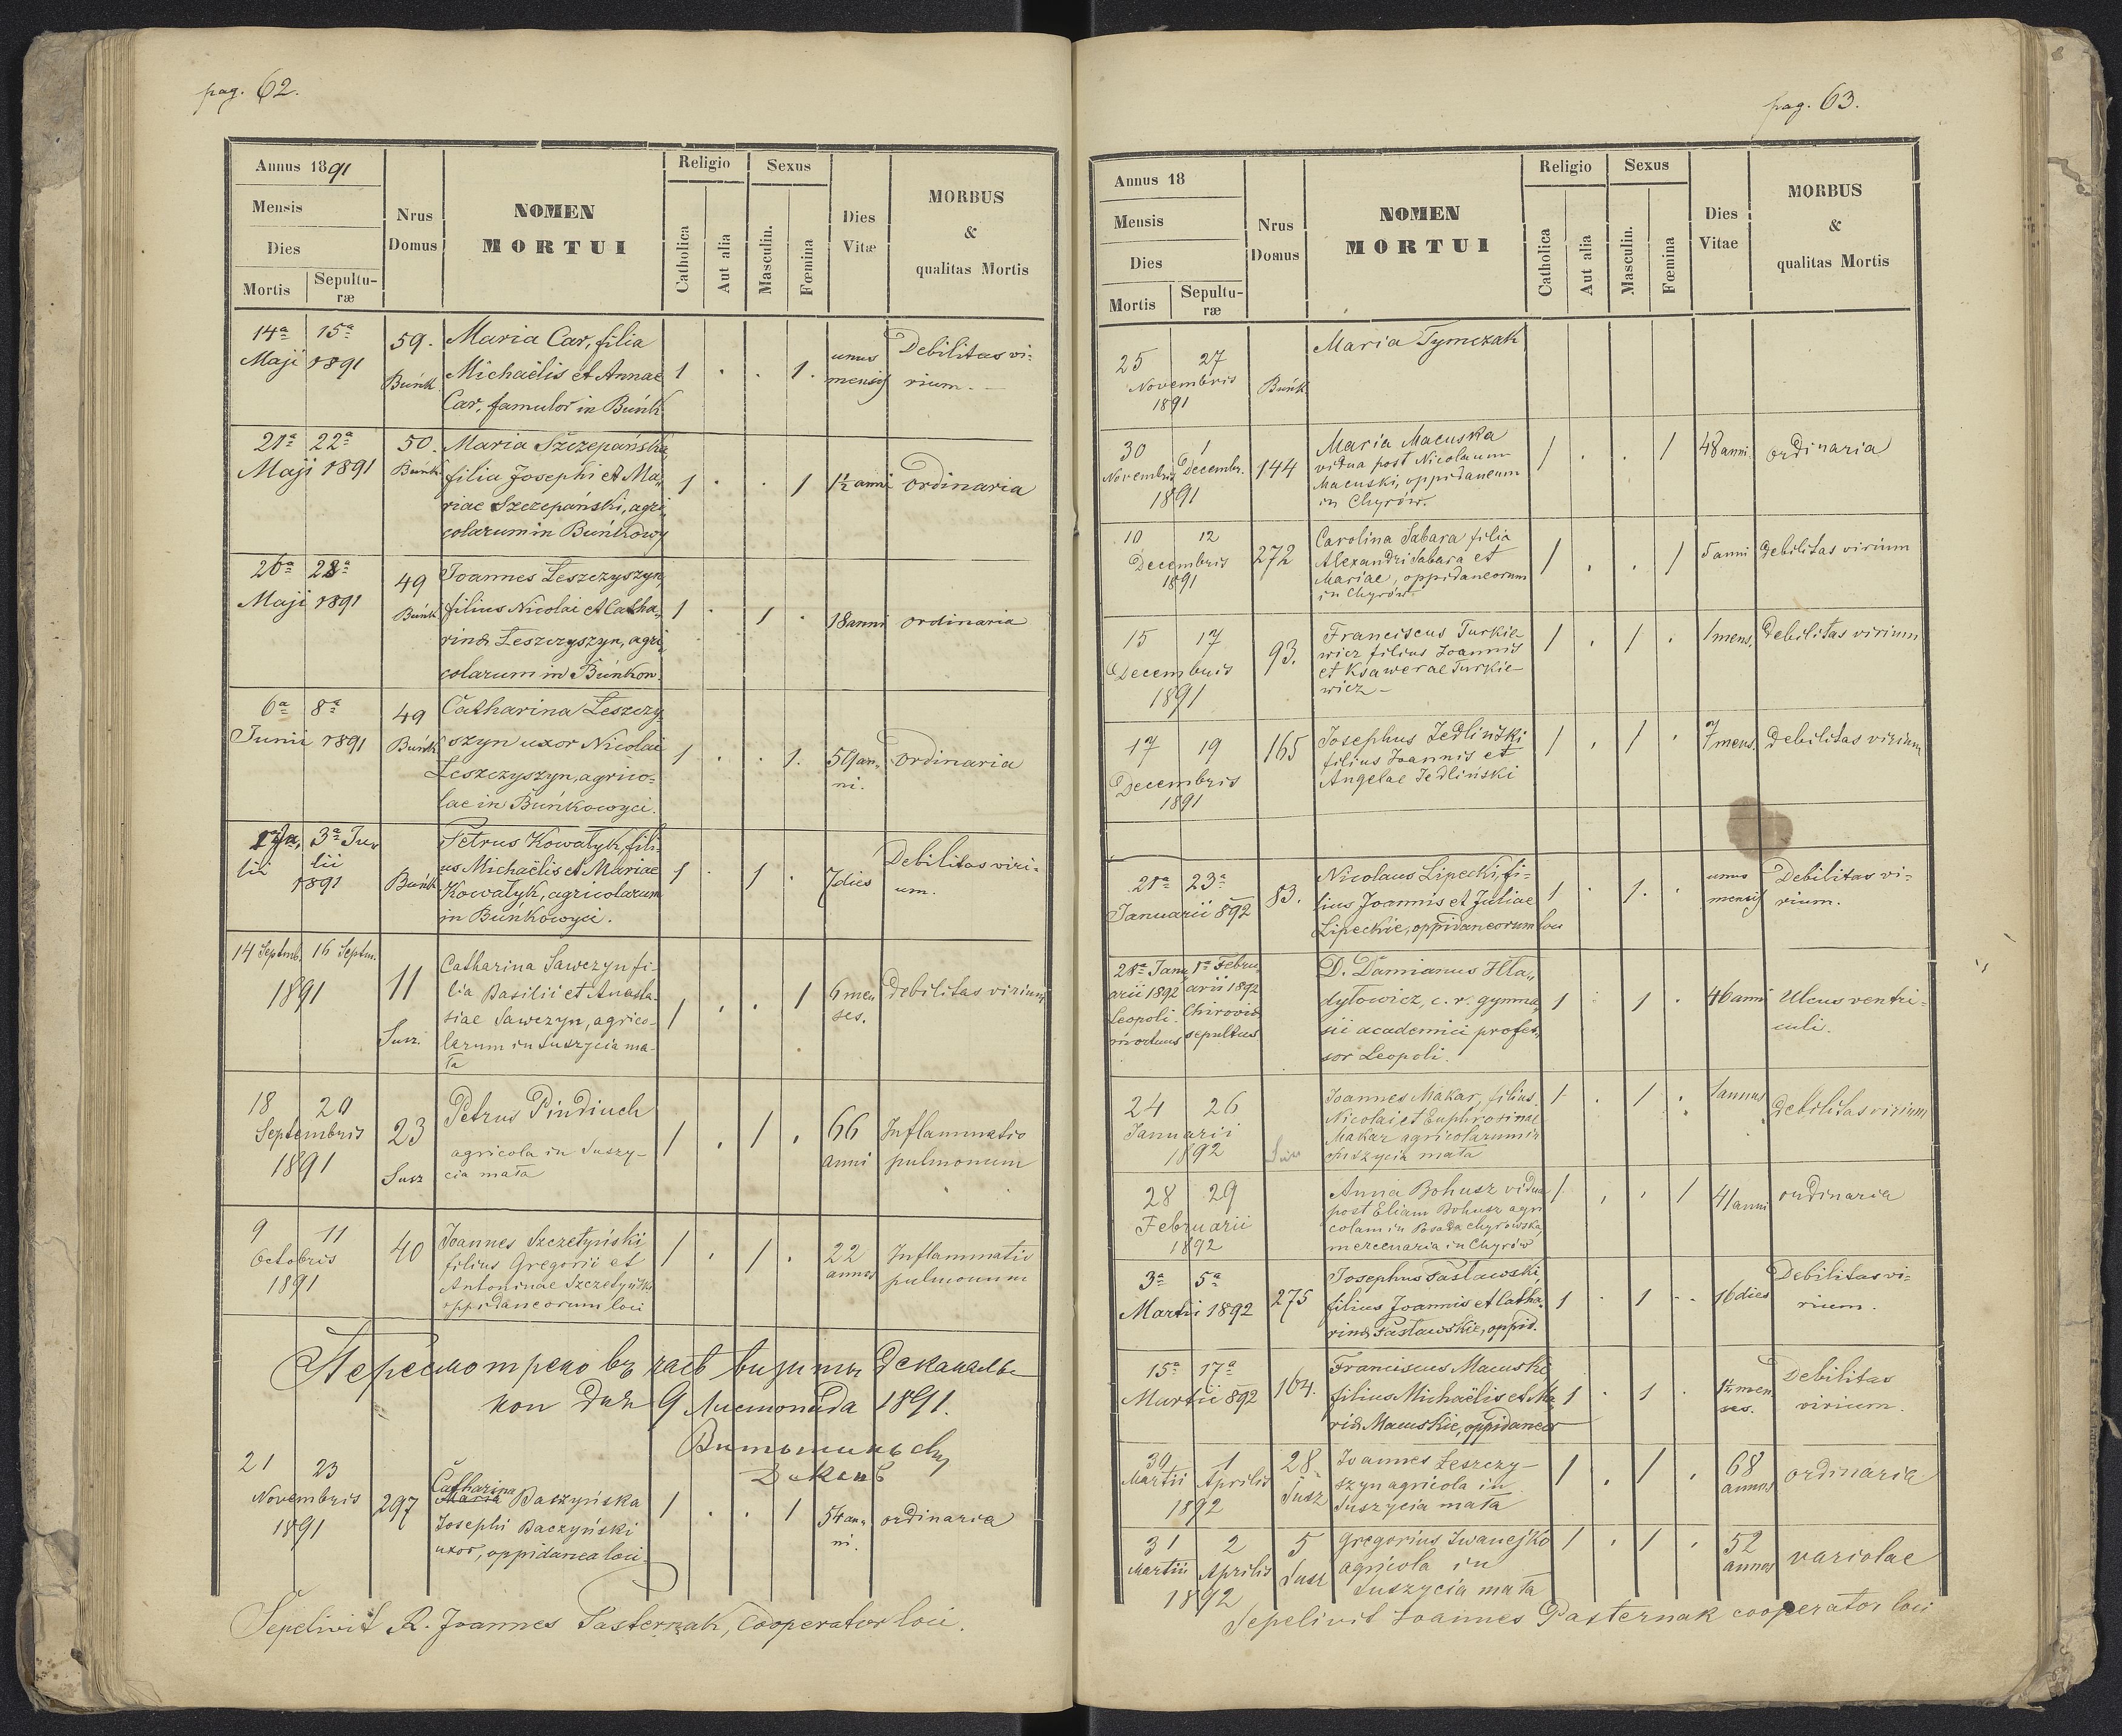 pag. 62.
Annus 1891
Mensis
Dies
Mortis
Sepultu-
ræ
Nrus
Domus
NOMEN
MORTUI
Religio
Catholica
Aut alia
Sexus
Masculin.
Fœmina
Dies
Vitæ
MORBUS
&
qualitas Mortis
14ª 15ª
Maji 1891
59.
Buńk
Maria Car, filia
Michaëlis et Annae
Car, famulor in Buńk.
1 . . 1.
unus
mensis
Debilitas vi-
rium.
21ª 22ª
Maji 1891
50.
Buńk
Maria Szczepańska,
filia Josephi et Ma-
riae Szczepański, agri-
colarum in Buńkowy
1 . . 1
1½ anni
ordinaria
26ª 28ª
Maji 1891
49
Buńk
Joannes Leszczyszyn
filius Nicolai et Catha-
rinæ Leszczyszyn, agri-
colarum in Buńkow.
1 . 1 .
18 anni
ordinaria
6ª 8ª
Junii 1891
49
Buńk
Catharina Leszczy-
szyn uxor Nicolai
Leszczyszyn, agrico-
lae in Buńkowyci.
1 . . 1.
59 an-
ni.
ordinaria
3ª Ju-
lii lii
1891
Buńk
Petrus Kowałyk, fili-
us Michaëlis et Mariae
Kowałyk, agricolarum
in Buńkowyci.
1 . 1 .
7 dies
Debilitas viri-
um.
14 Septmb. 16 Septm.
1891
11
Susz.
Catharina Sawczyn fi-
lia Basilii et Anasta-
siae Sawczyn, agrico-
larum in Suszycia ma-
ła
1 . . 1
6 men
ses.
debilitas virium
18 20
Septembris
1891
23
Susz
Petrus Pindiuch
agricola in Suszy-
cia mała
1 . 1 .
66
anni
Inflammatio
pulmonum
9 11
Octobris
1891
40
Joannes Szczetyński
filius Gregorii et
Antoninae Szczetyński
oppidaneorum loci
1 . 1 .
22
annos
Inflammatio
pulmonum
Пересмотрено въ часѣ визиты деканаль
ной дня 9 Листопада 1891.
Деканъ
21 23
Novembris
1891
297
Catharina
Maria Baczyńska
Josephi Baczyński
uxor, oppidanea loci
1 . . 1
54 an-
ni.
ordinaria
Sepelivit R. Joannes Pasternak, Cooperator loci.
pag. 63.
Annus 18
Mensis
Dies
Mortis
Sepultu-
ræ
Nrus
Domus
NOMEN
MORTUI
Religio
Catholica
Aut alia
Sexus
Masculin.
Fœmina
Dies
Vitae
MORBUS
&
qualitas Mortis
25 27
Novembris
1891
Buńk
Maria Tymczak
30 1
Novembris Decembr.
1891
144
Maria Macuska
vidua post Nicolaum
Macuski, oppidaneum
in Chyrów.
1 . . 1
48 anni
ordinaria
10 12
Decembris
1891
272
Carolina Sabara filia
Alexandri Sabara et
Mariae, oppidaneorum
in Chyrów
1 . . 1
5 anni
debilitas virium
15 17
Decembris
1891
93.
Franciscus Turkie-
wicz filius Joannis
et Ksawerae Turkie-
wicz –
1 . 1 .
1 mens.
debilitas virium
17 19
Decembris
1891
165
Josephus Jedliński
filius Joannis et
Angelae Jedliński
1 . 1 .
7 mens.
debilitas virium
21ª 23ª
Januarii 892
83.
Nicolaus Lipecki, fi-
lius Joannis et Juliae
Lipeckie, oppidaneorum loci
1 . 1 .
unus
mensis
Debilitas vi-
rium.
28ª Janu- 1ª Febru-
arii 1892 arii 1892
Leopoli. Chiroviæ
mortuus sepultus
D. Damianus Hła-
dyłowicz, c. r. gymna-
sii academici profes-
sor Leopoli.
1 . 1 .
46 anni
Ulcus ventri-
culi.
24 26
Januarii
1892
Susz
Joannes Makar, filius
Nicolai et Euphrosinae
Makar agricolarum in
Suszycia mała
1 . 1 .
1 annus
debilitas virium
28 29
Februarii
1892
Anna Bohusz vidua
post Eliam Bohusz agri
colam in Posada chyrowska,
mercenaria in Chyrów
1 . . 1
41 anni
ordinaria
3ª 5ª
Martii 1892
275
Josephus Pasławski,
filius Joannis et Catha-
rinæ Pasławskie, oppid.
1 . 1 .
16 dies
Debilitas vi-
rium.
15ª 17ª
Martii 892
164.
Franciscus Macuski
filius Michaëlis et Ma-
riæ Macuskie, oppidaneor
1 . 1 .
1½ men
ses.
Debilitas
virium.
30 1
Martii Aprilis
1892
28
Susz
Joannes Leszczy-
szyn agricola in
Suszycia mała
1 . 1 .
68
annos
ordinaria
31 2
Martii Aprilis
1892
5
Susz
Gregorius Iwanejko
agricola in
Suszycia mała
1 . 1 .
52
annos
variolae
Sepelivit Joannes Pasternak cooperator loci